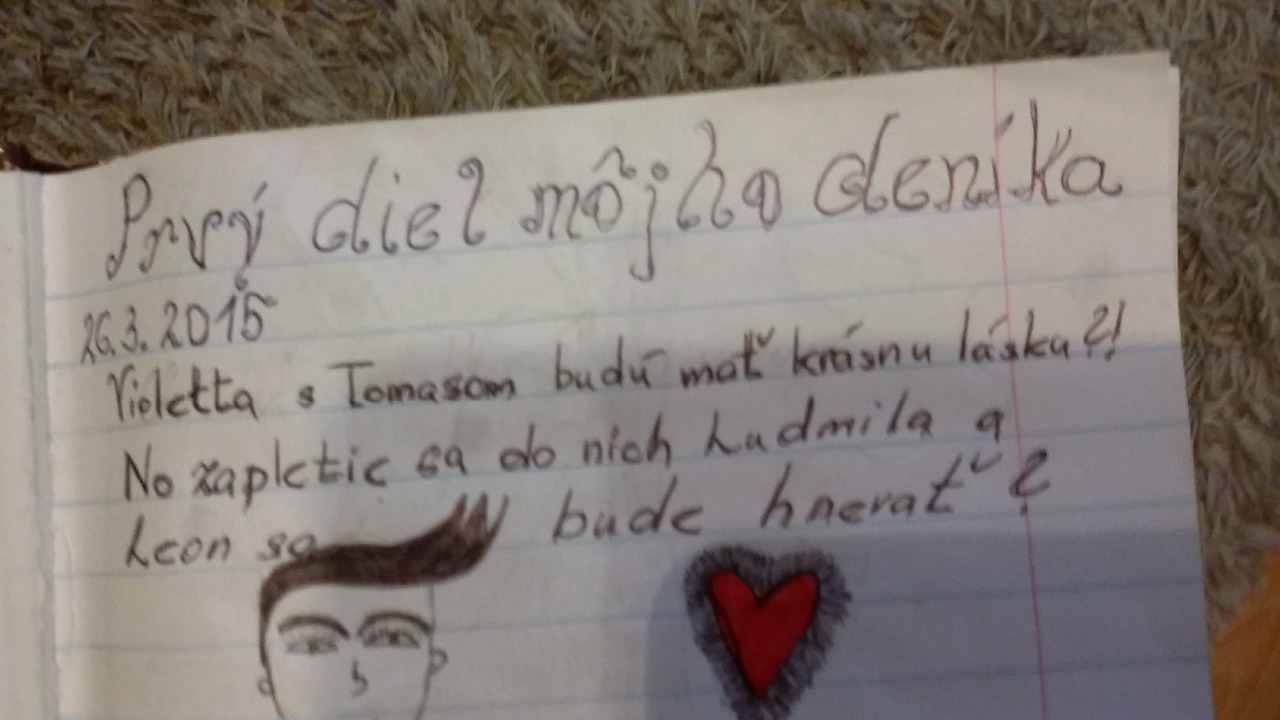 Prvý diel môjho deníka
26.3.2015
Violetta s Tomasom budú mať krásnu lásku?!
No zapletie sa do nich Ludmila a
Leon sa bude hnevať?